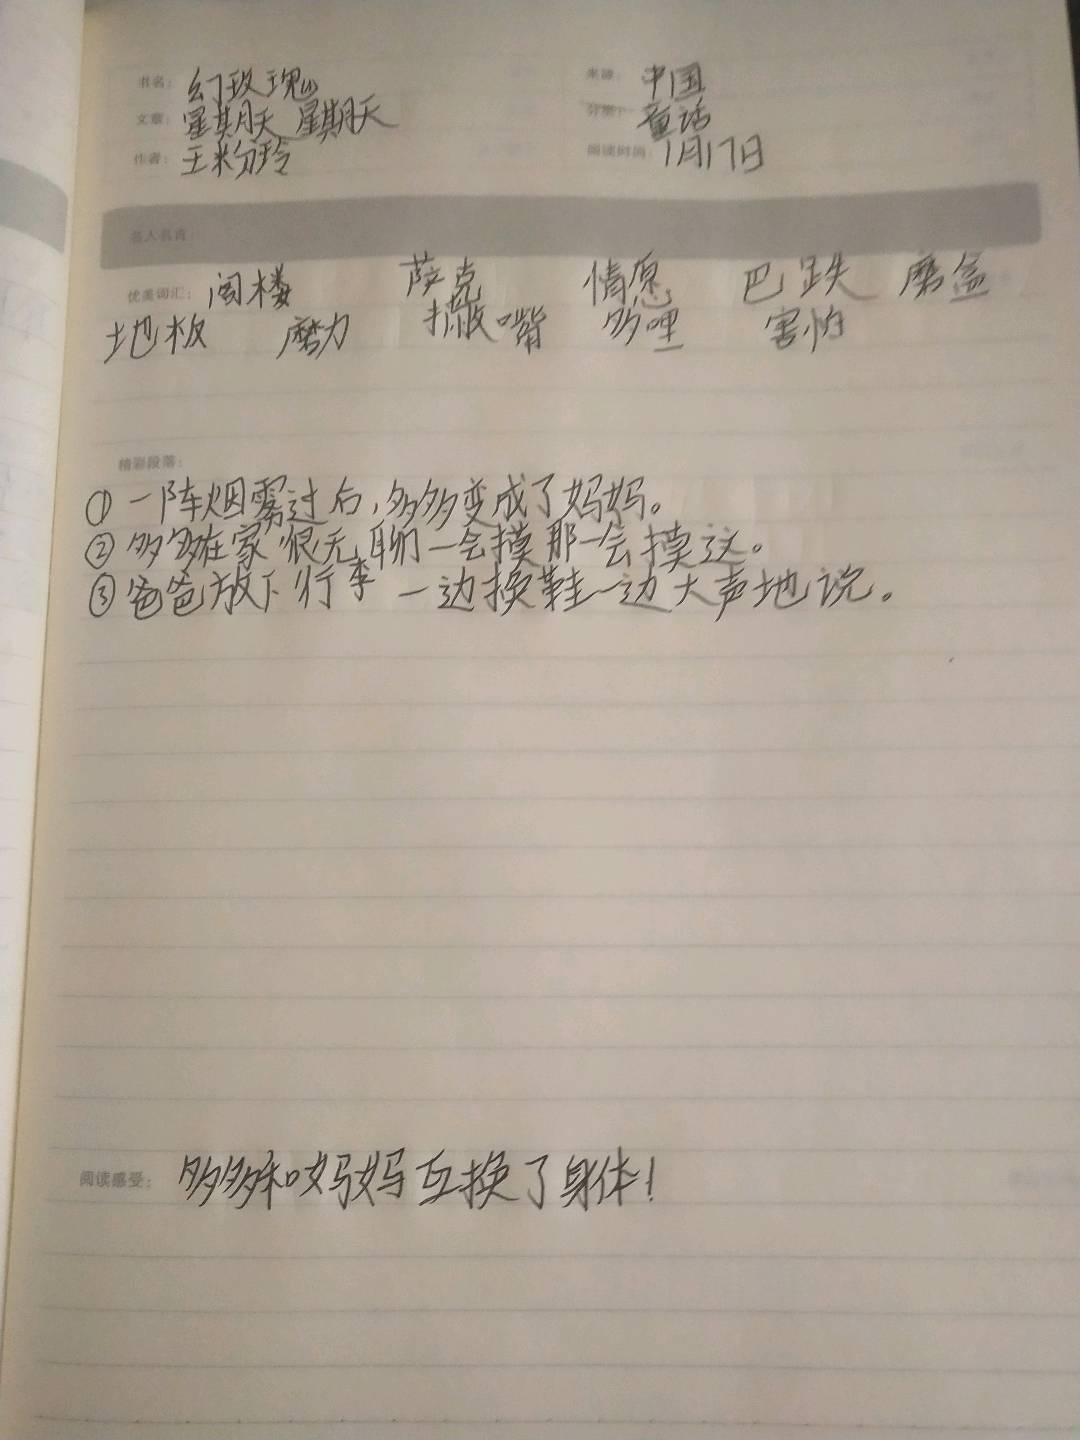 书名： 幻玫瑰山 来源： 中国
文章： 星期天 星期天 分类： 童话
作者： 王粉玲 阅读时间： 1月17日
名人名言：
优美词汇： 阁楼 萨克 情愿 巴跌 磨盆
地板 磨力 撇嘴 多哩 害怕
精彩段落：
①一阵烟雾过后，多多变成了妈妈。
②多多在家很无聊一会摸那一会摸这。
③爸爸放下行李一边换鞋一边大声地说。
阅读感受： 多多和妈妈互换了身体！